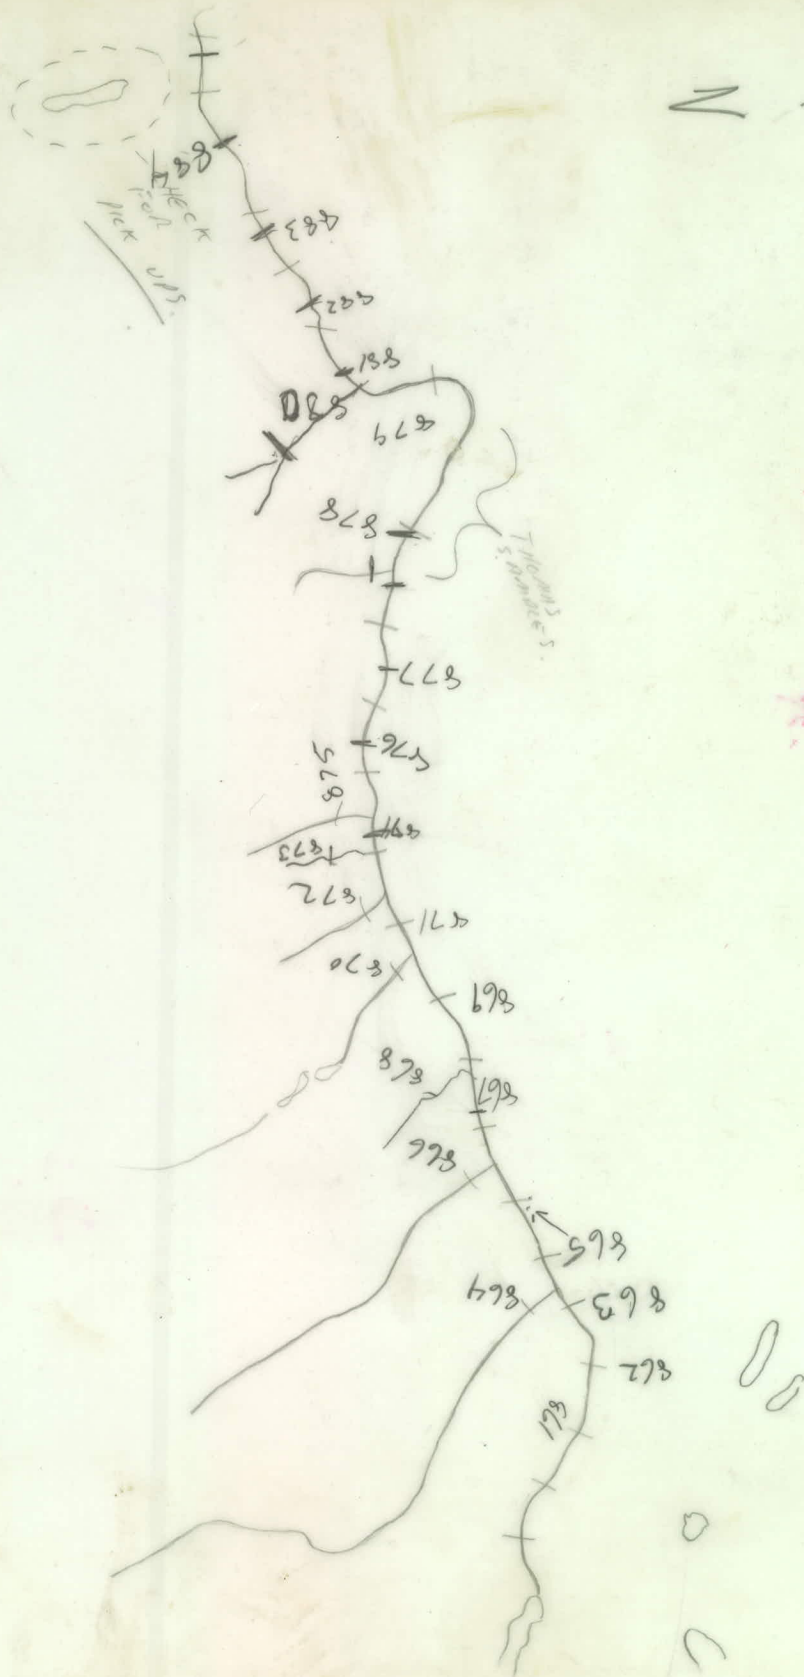 N
88
CHECK
FOR
PICK UPS.
883
882
881
880
879
878
THOMAS
SAMPLES.
877
876
875
874
873
872
871
870
869
868
867
866
865
864
863
862
861